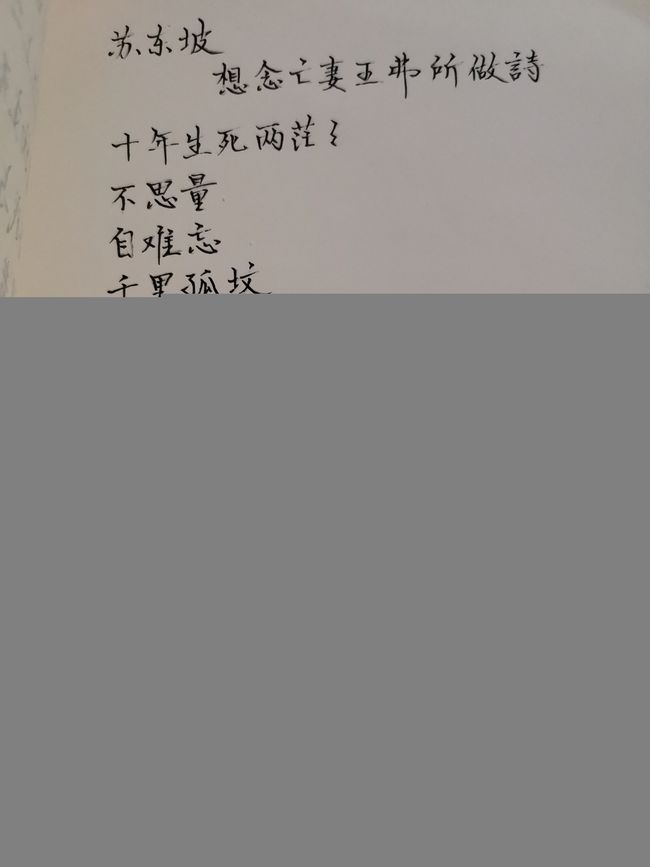 苏东坡
想念亡妻王弗所做詩
十年生死两茫々
不思量
自难忘
千里孤坟